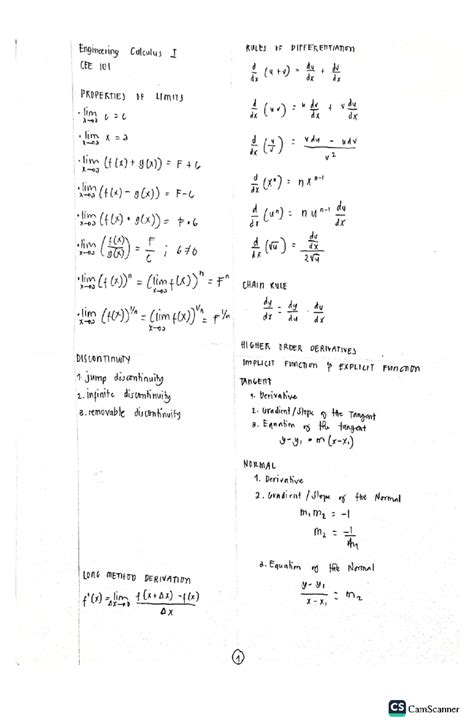 Engineering Calculus I
CEE 101
PROPERTIES OF LIMITS
• lim x→a c = c
• lim x→a x = a
• lim x→a (f(x) + g(x)) = F + G
• lim x→a (f(x) - g(x)) = F - G
• lim x→a (f(x) • g(x)) = F • G
• lim x→a (f(x)/g(x)) = F/G ; G≠0
• lim x→a (f(x))^n = (lim x→a f(x))^n = F^n
• lim x→a (f(x))^1/n = (lim x→a f(x))^1/n = F^1/n
DISCONTINUITY
1. jump discontinuity
2. infinite discontinuity
3. removable discontinuity
LONG METHOD DERIVATION
f'(x) = lim Δx→0 f(x+Δx) - f(x) / Δx
RULES OF DIFFERENTIATION
d/dx (u+v) = du/dx + dv/dx
d/dx (uv) = u dv/dx + v du/dx
d/dx (u/v) = vdu - udv / v²
d/dx (x^n) = nx^n-1
d/dx (u^n) = nu^n-1 du/dx
d/dx (√u) = du/dx / 2√u
CHAIN RULE
dy/dx = dy/du · du/dx
HIGHER ORDER DERIVATIVES
IMPLICIT FUNCTION & EXPLICIT FUNCTION
TANGENT
1. Derivative
2. Gradient/Slope of the Tangent
3. Equation of the tangent
y-y₁ = m(x-x₁)
NORMAL
1. Derivative
2. Gradient/Slope of the Normal
m₁m₂ = -1
m₂ = -1/
3. Equation of the Normal
y-y₁ / x-x₁ = m₂
1
CS CamScanner